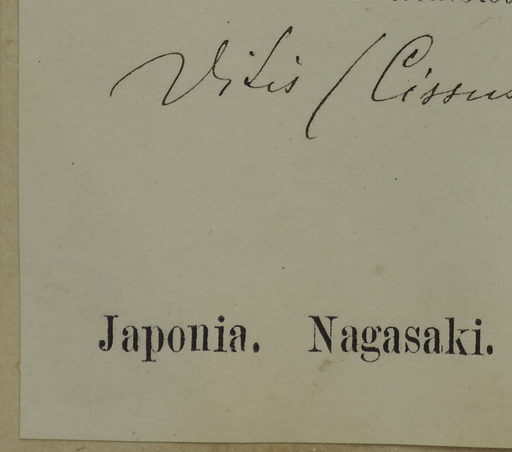 Vitis (Cissus
Japonia. Nagasaki.